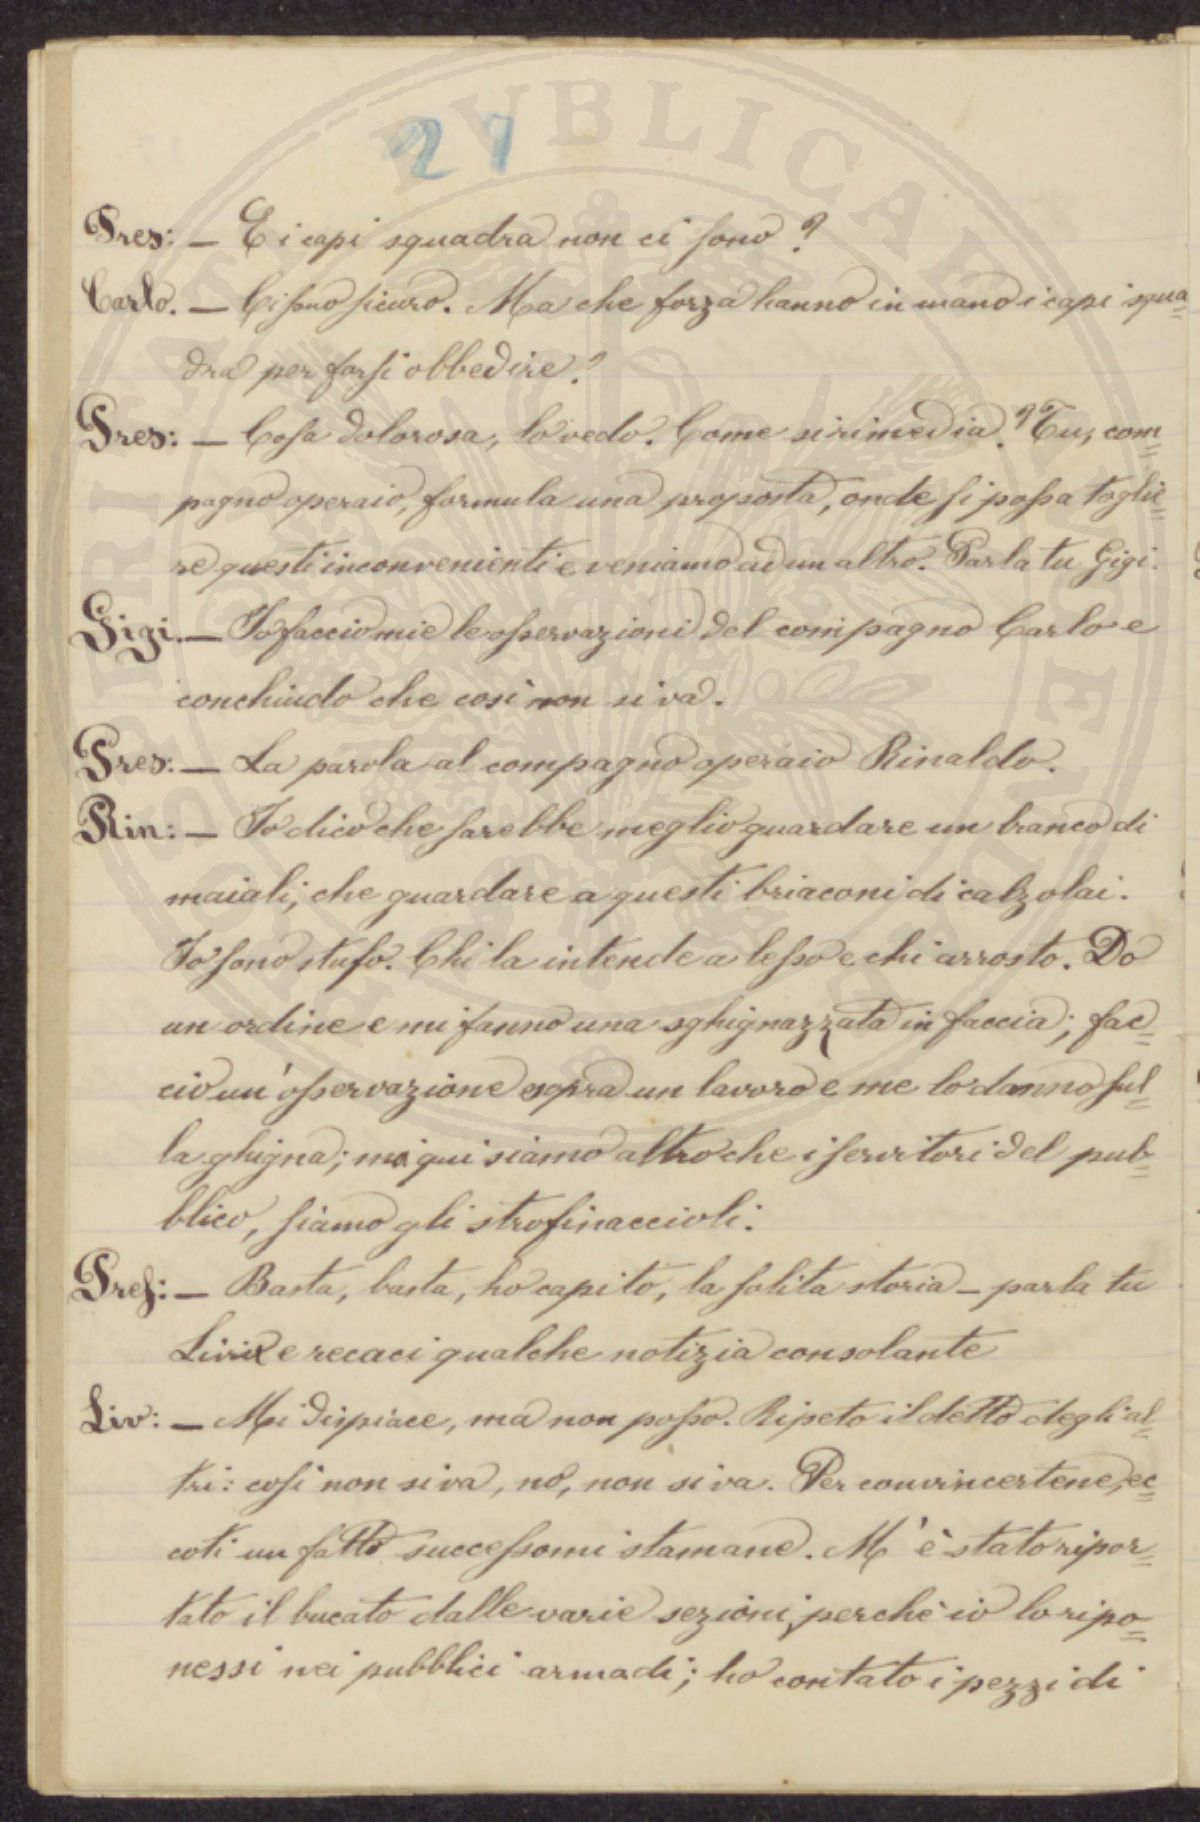 27
Pres: — E i capi squadra non ci sono?
Carlo. — Ci sono sicuro. Ma che forza hanno in mano i capi squa=
dra per farsi obbedire?
Pres: — Cosa dolorosa, lo vedo. Come si rimedia? Tu, com=
pagno operaio, formula una proposta, onde si possa toglie=
re questi inconvenienti e veniamo ad un altro. Parla tu Gigi.
Gigi. — Io faccio mie le osservazioni del compagno Carlo e
conchiudo che così non si va.
Pres: — La parola al compagno operaio Rinaldo.
Rin: — Io dico che sarebbe meglio guardare un branco di
maiali, che guardare a questi briaconi di calzolai.
Io sono stufo. Chi la intende a lesso e chi arrosto. Do
un ordine e mi fanno una sghignazzata in faccia; fac=
cio un'osservazione sopra un lavoro e me lo danno sul=
la ghigna; ma qui siamo altro che i servitori del pub=
blico, siamo gli strofinaccioli.
Pres: — Basta, basta, ho capito, la solita storia — parla tu
e recaci qualche notizia consolante
Liv: — Mi dispiace, ma non posso. Ripeto il detto degli al=
tri: così non si va, no, non si va. Per convincertene, ec=
coti un fatto successomi stamane. M'è stato ripor=
tato il bucato dalle varie sezioni, perchè io lo ripo=
nessi nei pubblici armadi; ho contato i pezzi di